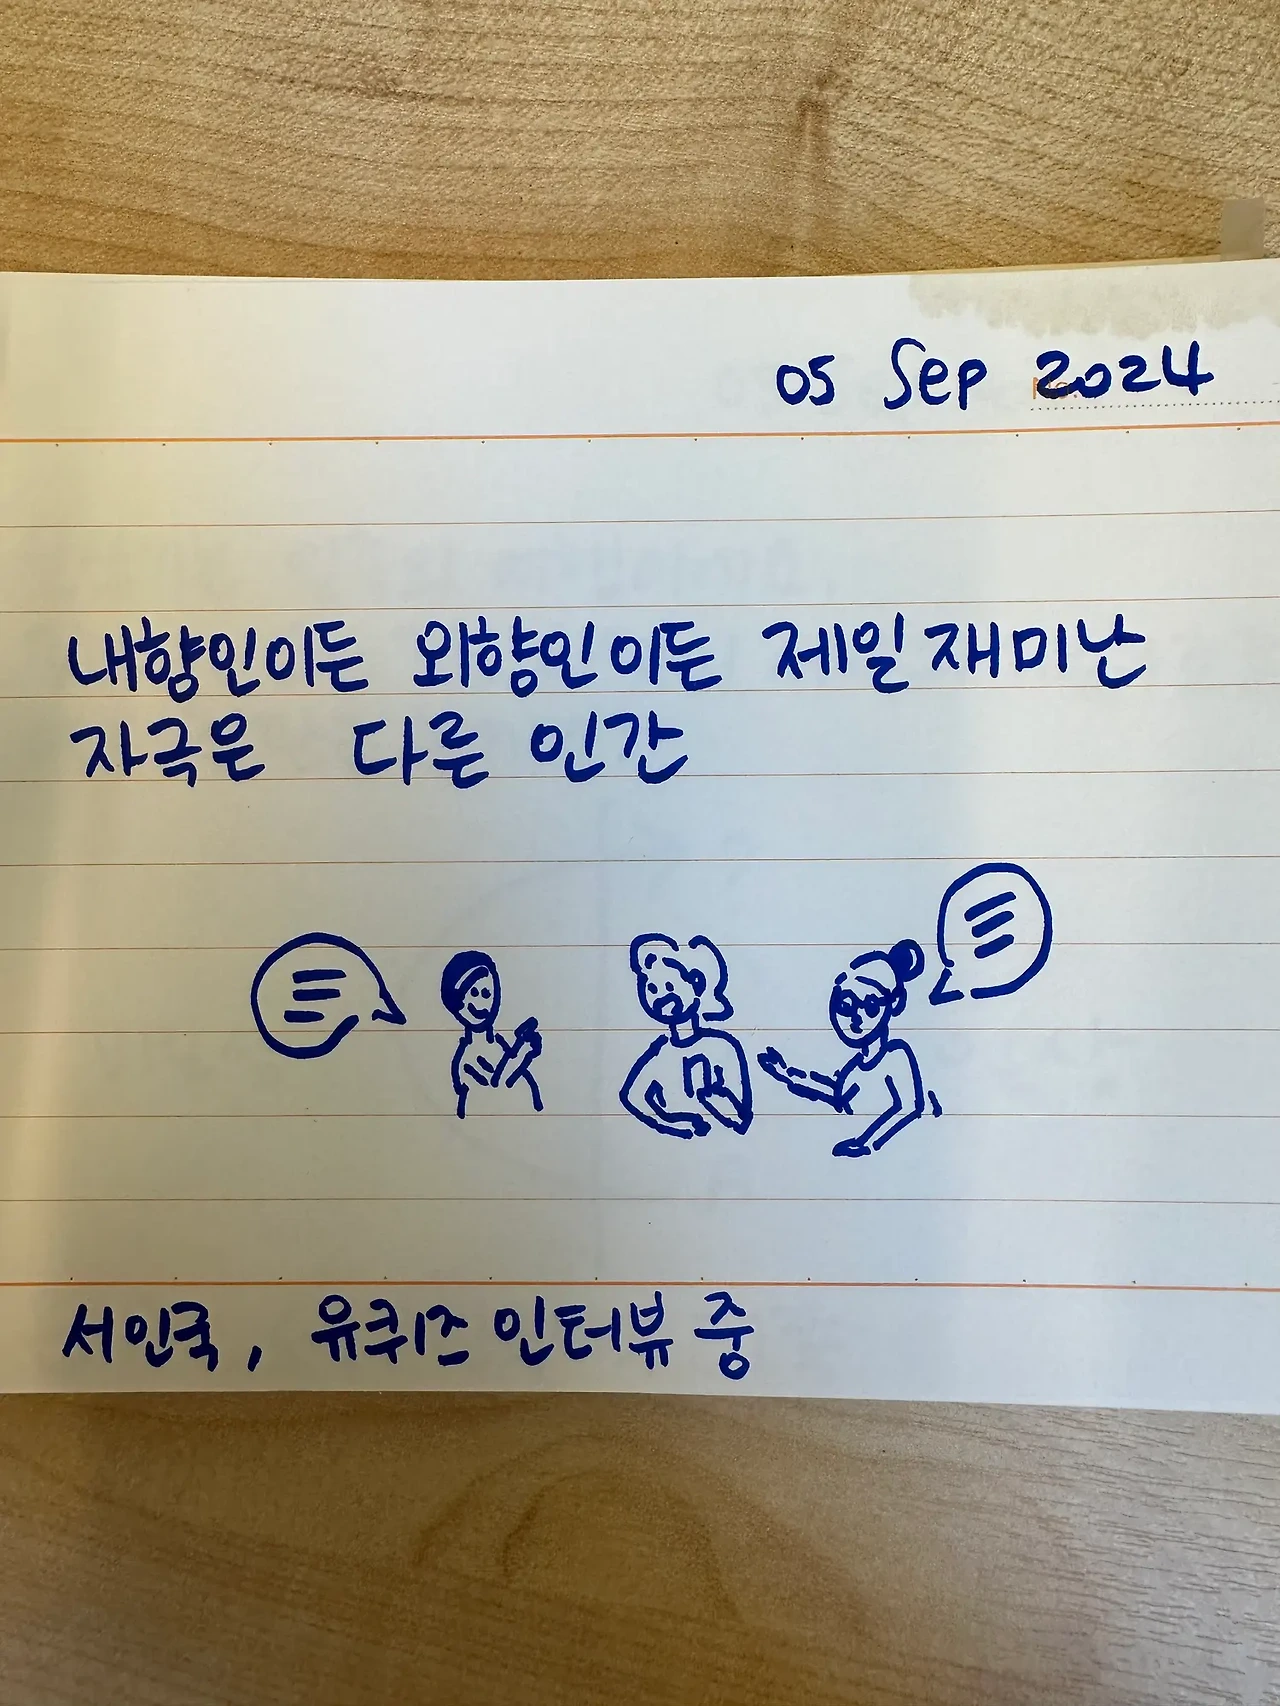 05 Sep 2024
내향인이든 외향인이든 제일 재미난
자극은 다른 인간
서인국, 유퀴즈 인터뷰 중